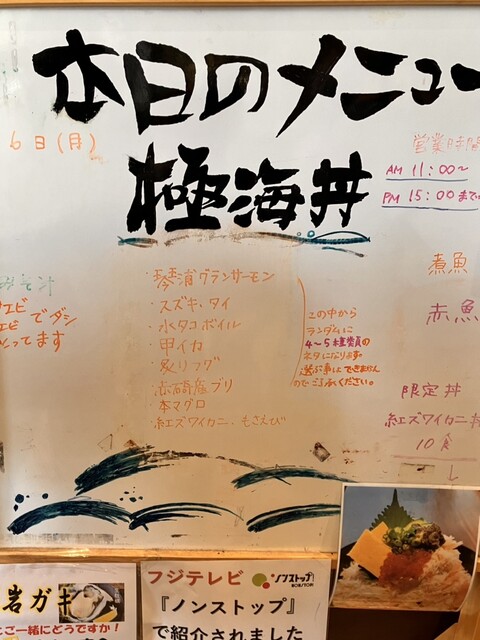 本日のメニュー
6日(月)
極海丼
営業時間
AM 11:00〜
PM 15:00まで
みそ汁
エビでダシ
とってます
・琴浦グランサーモン
・スズキ・タイ
・水タコボイル
・甲イカ
・炙りフグ
ブリ
・本マグロ
・紅ズワイカニ・もさえび
この中から
ランダムに
4〜5種類の
ネタになります。
選ぶ事はできません
のでご了承ください。
煮魚
赤魚
限定丼
紅ズワイカニ丼
10食
岩ガキ
ご一緒にどうですか!
フジテレビ
ノンストップ!
『ノンストップ』
で紹介されました